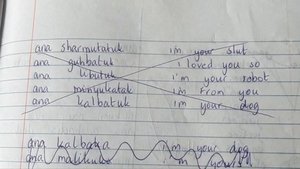 ana sharmutatuk i'm your slut
ana guhbatuk i loved you so
ana libutuk i'm your robot
ana minyukatak i'm from you
ana kalbatuk i'm your dog
ana kalboka i'm your dog
ana malikuka i'm your